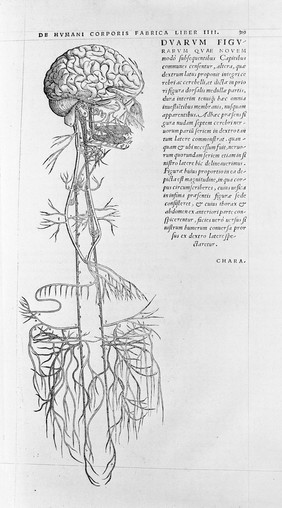 DE HVMANI CORPORIS FABRICA LIBER IIII.
DVARVM FIGV-
RARVM QVAE NOVEM
modò subsequentibus Capitibus
communes censentur, altera, quae
dextrum latus proponit integrè ce
rebri ac cerebelli, et dicta in prio
ri figura dorsalis medullae partis,
dura interim tenuiq; hac omnia
inuestientibus membranis, nusquam
apparentibus. Ad haec praesens fi
gura nudam septem cerebri ner-
uorum parium seriem in dextro tan
tum latere commonstrat, quan-
quam & ubi necessum fuit, neruo-
rum quorundam seriem etiam in si
nistro latere hic delineauimus.
Figurae huius proportio in ea de-
picta est magnitudine, in qua cor-
pus circumscriberes, cuius uesica
in infima praesentis figurae sede
consisteret, & cuius thorax &
abdomen ex anteriori parte con-
spicerentur, facies uerò uersus si
nistrum humerum conuersa pror
sus ex dextro latere spe-
ctaretur.
CHARA-